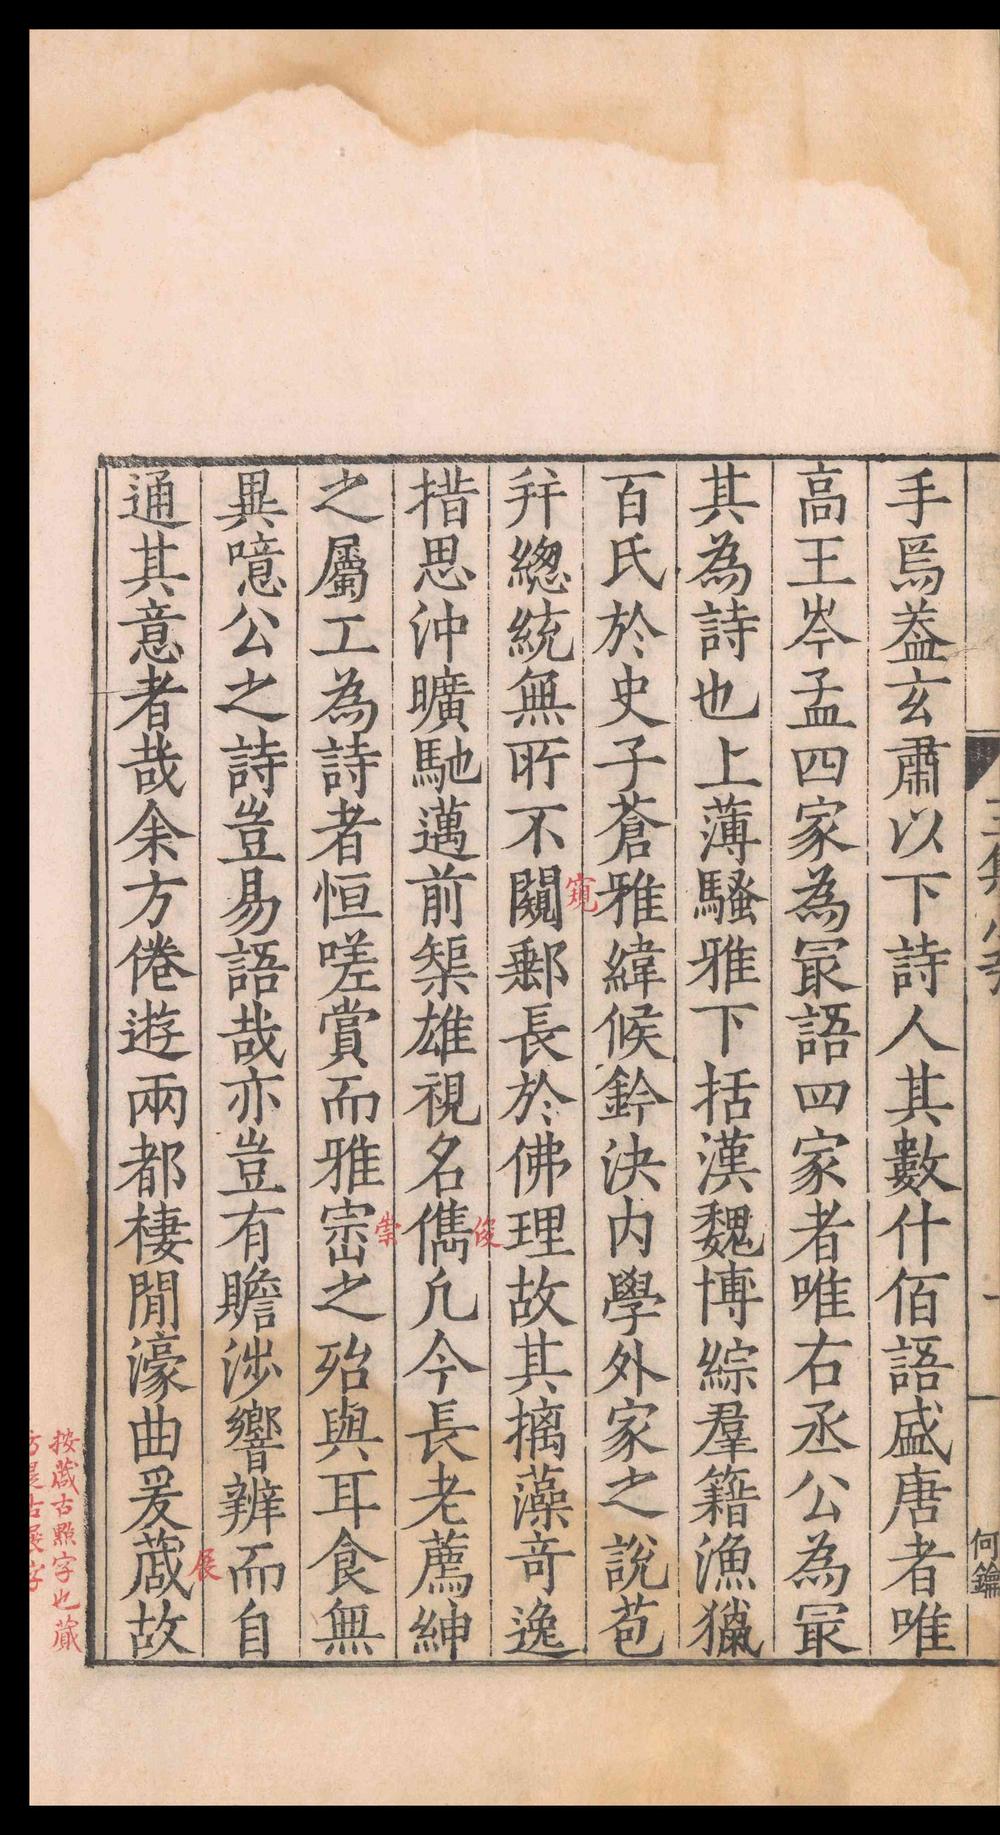 手焉葢玄肅以下詩人其數什佰語盛唐者唯
高王岑孟四家為冣語四家者唯右丞公為冣
其為詩也上薄騷雅下括漢魏博綜羣籍漁獵
百氏於史子蒼雅緯候鈐決内學外家之說苞
幷緫統無所不闚郵長於佛理故其摛藻竒逸
窺
措思沖曠馳邁前榘雄視名儁凡今長老薦紳
俊
之屬工為詩者恒嗟賞而雅崈之殆與耳食無
崇
異噫公之詩豈易語哉亦豈有贍涉響辨而自
通其意者哉余方倦遊兩都棲閒濠曲爰蒇故
展
按蒇古㸃字也蕆
何鑰